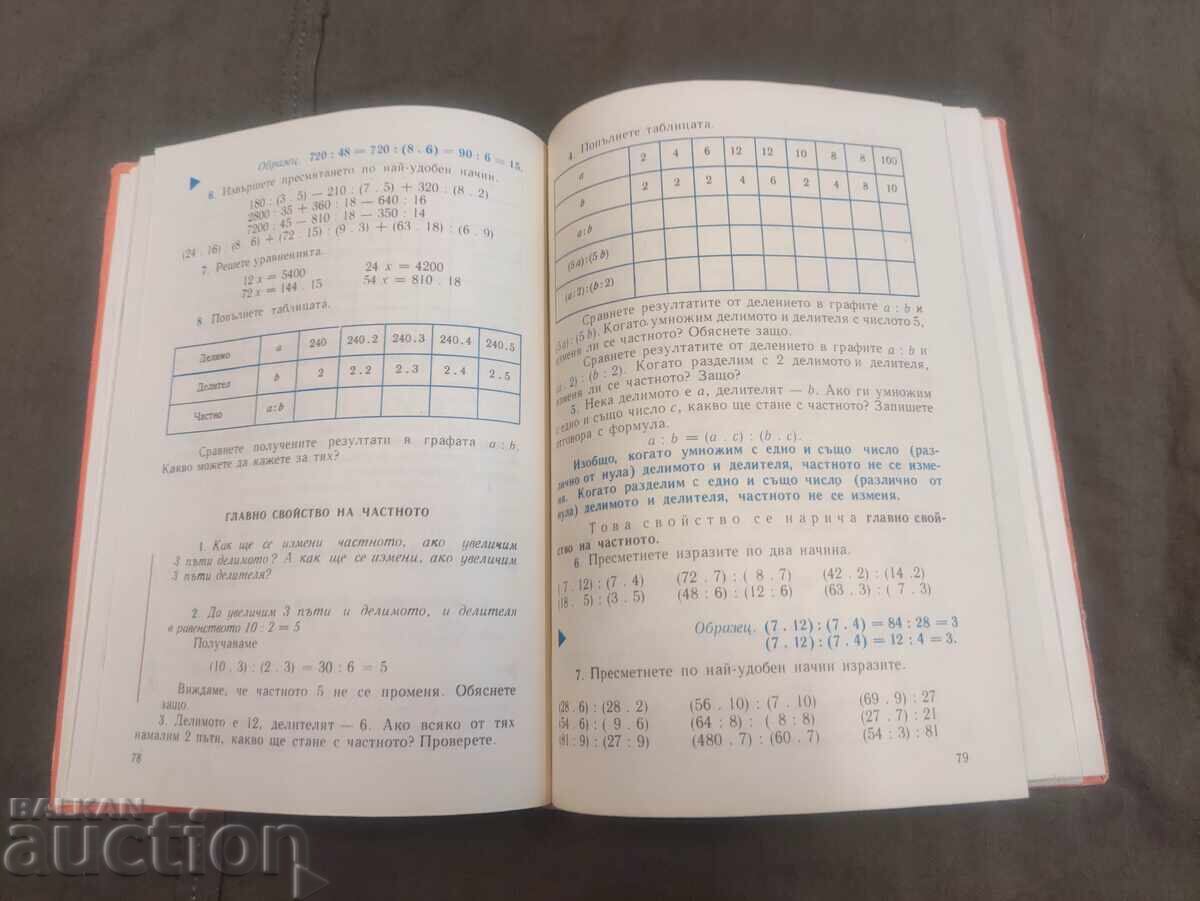 Образец. 720 : 48 = 720 : (8 . 6) = 90 : 6 = 15.
6. Извършете пресмятането по най-удобен начин.
180 : (3 . 5) — 210 : (7 . 5) + 320 : (8 . 2)
2800 : 35 + 360 : 18 — 640 : 16
7200 : 45 — 810 : 18 — 350 : 14
(24 . 16) : (8 . 6) + (72 . 15) : (9 . 3) + (63 . 18) : (6 . 9)
7. Решете уравненията.
12 x = 5400 24 x = 4200
72 x = 144 . 15 54 x = 810 . 18
8. Попълнете таблицата.
Делимо a 240 240.2 240.3 240.4 240.5
Делител b 2 2.2 2.3 2.4 2.5
Частно a:b
Сравнете получените резултати в графата a : b.
Какво можете да кажете за тях?
ГЛАВНО СВОЙСТВО НА ЧАСТНОТО
1. Как ще се измени частното, ако увеличим
3 пъти делимото? А как ще се измени, ако увеличим
3 пъти делителя?
2. Да увеличим 3 пъти и делимото, и делителя
в равенството 10 : 2 = 5
Получаваме
(10 . 3) : (2 . 3) = 30 : 6 = 5
Виждаме, че частното 5 не се променя. Обяснете
защо.
3. Делимото е 12, делителят — 6. Ако всяко от тях
намалим 2 пъти, какво ще стане с частното? Проверете.
78
4. Попълнете таблицата.
a 2 4 6 12 12 10 8 8 100
b 2 2 2 4 6 2 4 8 10
a:b
(5a):(5b)
(a:2):(b:2)
Сравнете резултатите от делението в графите a : b и
(5a) : (5b). Когато умножим делимото и делителя с числото 5,
изменя ли се частното? Обяснете защо.
Сравнете резултатите от делението в графите a : b и
(a : 2) : (b : 2). Когато разделим с 2 делимото и делителя,
изменя ли се частното? Защо?
5. Нека делимото е a, делителят — b. Ако ги умножим
с едно и също число c, какво ще стане с частното? Запишете
отговора с формула.
a : b = (a . c) : (b . c).
Изобщо, когато умножим с едно и също число (раз-
лично от нула) делимото и делителя, частното не се изме-
ня. Когато разделим с едно и също число (различно от
нула) делимото и делителя, частното не се изменя.
Това свойство се нарича главно свой-
ство на частното.
6. Пресметнете изразите по два начина.
(7 . 12) : (7 . 4) (72 . 7) : ( 8 . 7) (42 . 2) : (14 . 2)
(18 . 5) : (3 . 5) (48 : 6) : (12 : 6) (63 . 3) : ( 7 . 3)
Образец. (7 . 12) : (7 . 4) = 84 : 28 = 3
(7 . 12) : (7 . 4) = 12 : 4 = 3.
7. Пресметнете по най-удобен начин изразите.
(28 . 6) : (28 . 2) (56 . 10) : (7 . 10) (69 . 9) : 27
(54 . 6) : ( 9 . 6) (64 : 8) : ( 8 : 8) (27 . 7) : 21
(81 : 9) : (27 : 9) (480 . 7) : (60 . 7) (54 : 3) : 81
79
BALKAN
auction